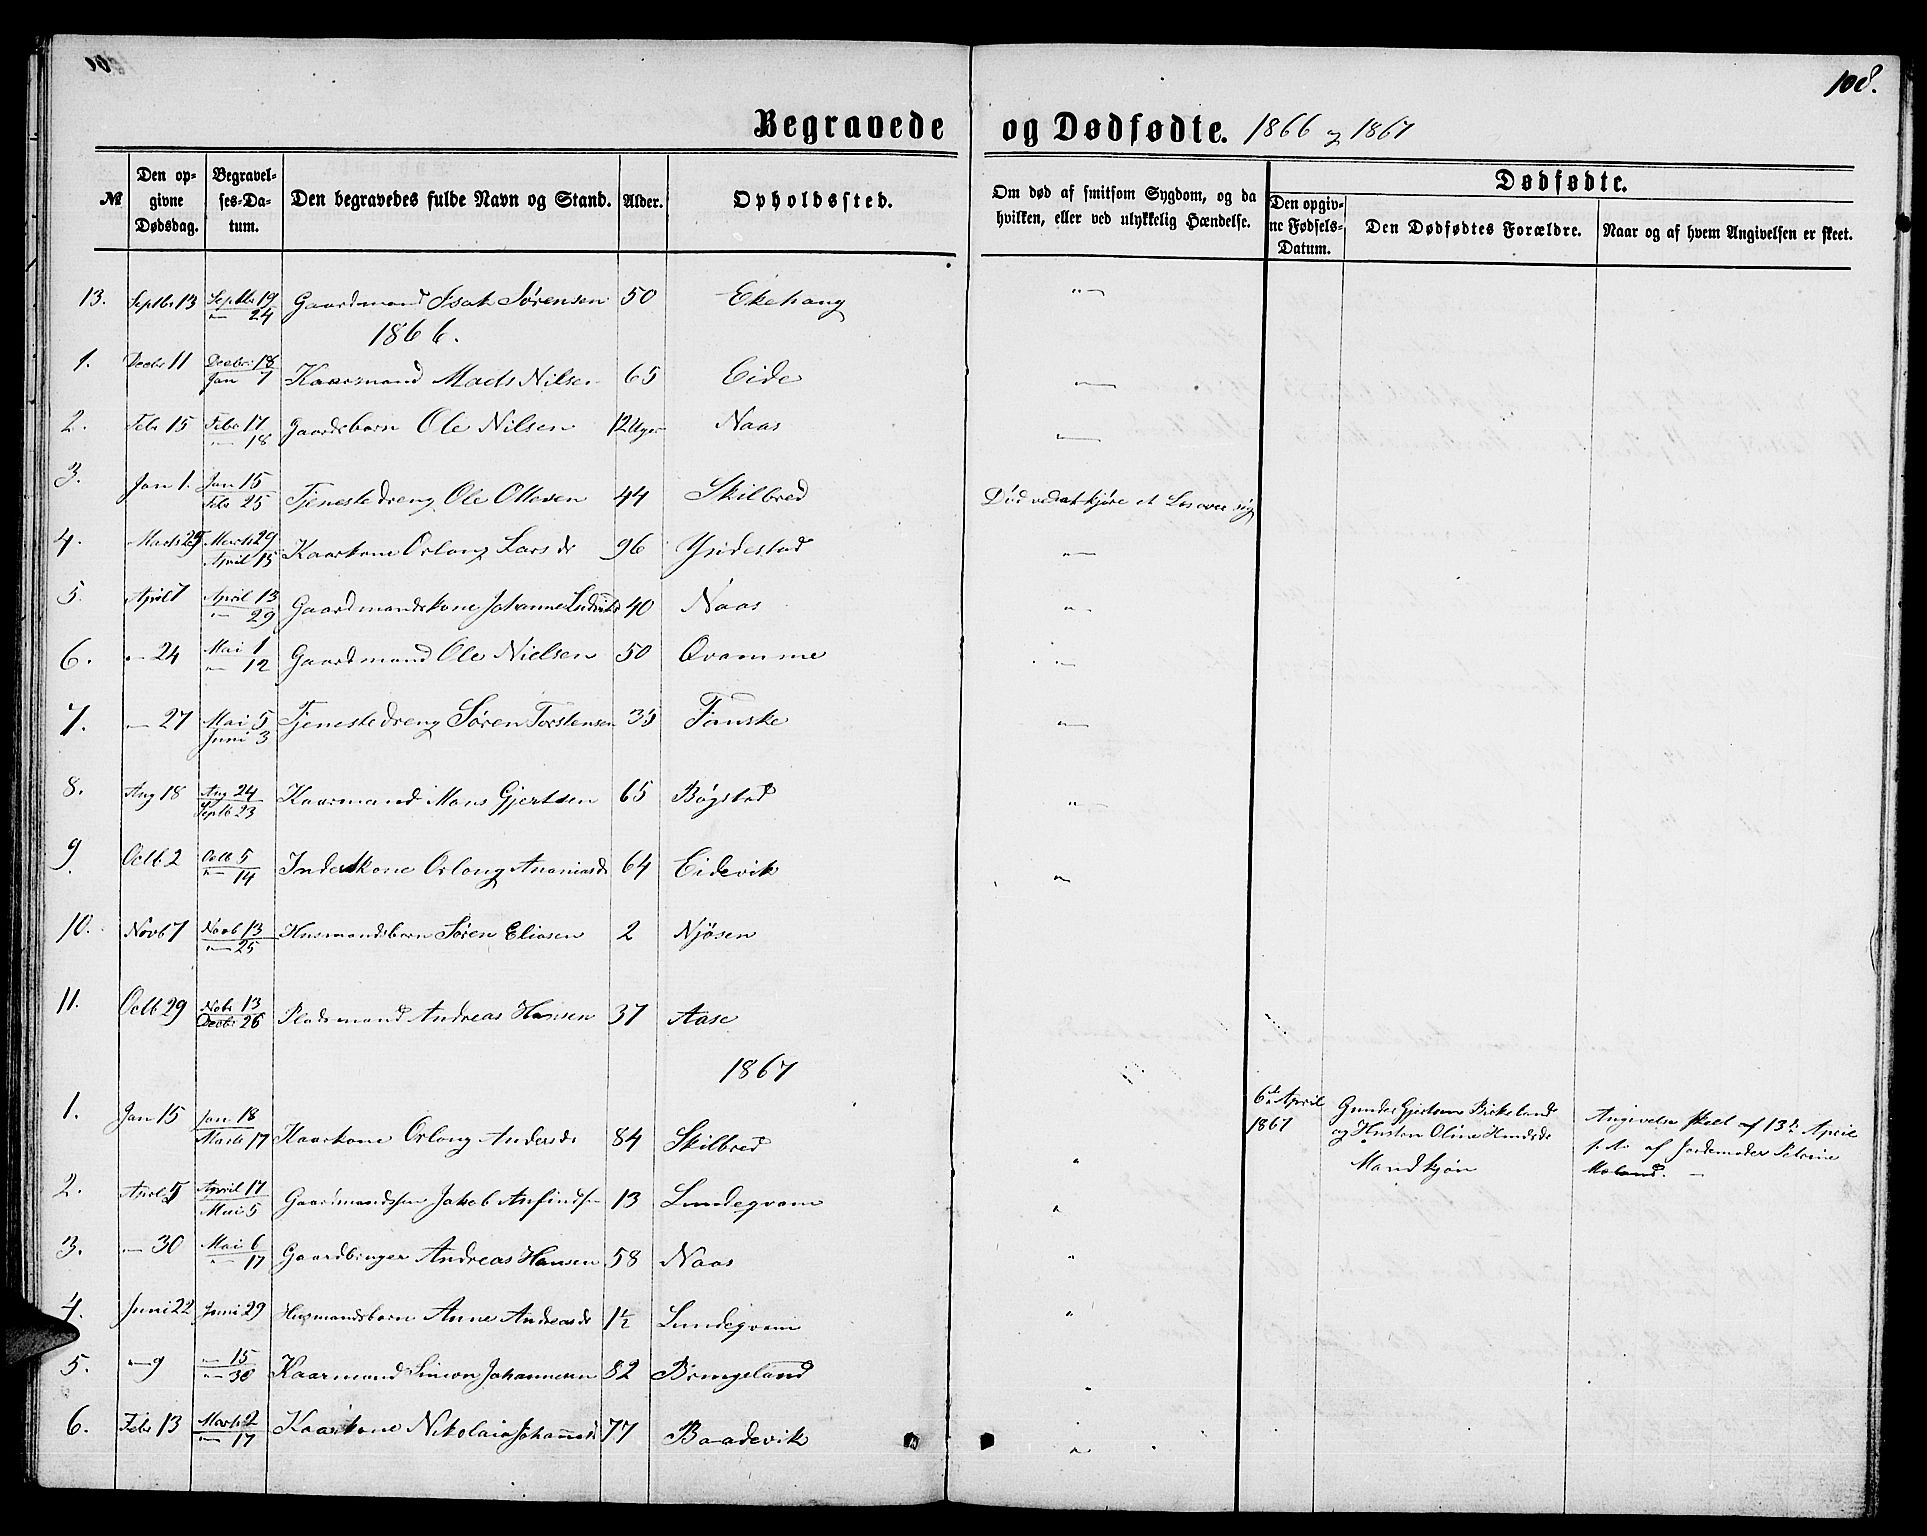 108.
Begravede og Dødfødte. 1866 og 1867
№
Den opgivne Dødsdag.
Begravelses-Datum.
Den begravedes fulde Navn og Stand.
Alder.
Opholdssted.
Om død af smitsom Sygdom, og da hvilken, eller ved ulykkelig Hændelse.
Dødfødte.
Den opgivne Fødsels-Datum.
Den Dødfødtes Forældre.
Naar og af hvem Angivelsen er skeet.
13. Septbr 13 Septbr 19 — 24 Gaardmand Isak Sørensen 50 Ekehaug "—
1866.
1. Decbr 11 Decbr 18 Jan 7 Kaarmand Mads Nilsen 65 Eide "—
2. Febr 15 Febr 17 — 18 Gaardsbarn Ole Nilsen 12 Uger Naas "—
3. Jan 1. Jan 15 Febr 25 Tjenestedreng Ole Olsen 44 Skilbred Død ved at kjøre et Læs over sig
4. Marts 25 Marts 29 April 15 Kaarkone Orlong Larsdr 96 Yndestad "—
5. April 7 April 13 — 29 Gaardmandskone Johanne 40 Naas "—
6. — 24 Mai 1 — 12 Gaardmand Ole Nielsen 50 Qvamme "—
7. — 27 Mai 5 Juni 3 Tjenestedreng Søren Torstensen 35 Fauske "—
8. Aug 18 Aug 24 Septb 23 Kaarmand Mons Gjertsen 65 Bøgstad "—
9. Octb 2 Octb 5 — 14 Inderstkone Orlong Ananiasdr 64 Eidevik "—
10. Novb 7 Novb 13 — 25 Husmandsbarn Søren Eliasen 2 Njøsen
11. Octb 29 Nobr 13 Decbr 26 Pladsmand Andreas Hansen 37 Aase
1867
1. Jan 15 Jan 18 Marts 17 Kaarkone Orlong Andersdr 84 Skilbred "
6te April 1867
og Hustru Oline
Mandkjøn
Angivelse skeet af 13de April
af Jordemoder Petrine
Moland. —
2. April 5 April 17 Mai 5 Gaardmandssøn Jakob Anfindsen 13 Lundeqvam "
3. — 30 Mai 6 — 17 Gaardbruger Andreas Hansen 58 Naas "
4. Juni 22 Juni 29 Husmandsbarn Anne Andreasdr 1½ Lundeqvam "
5. — 9 — 15 — 30 Kaarmand Simon Johannesen 82 Bringeland "
6. Febr 13 Marts 2 — 17 Kaarkone Nikolaia Johannesdr 77 Baadevik "